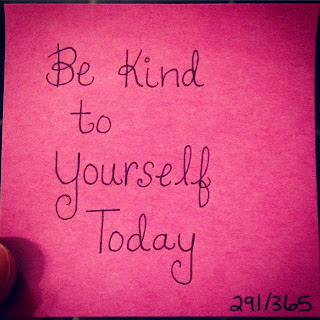 Be Kind
to
Yourself
Today
291/365